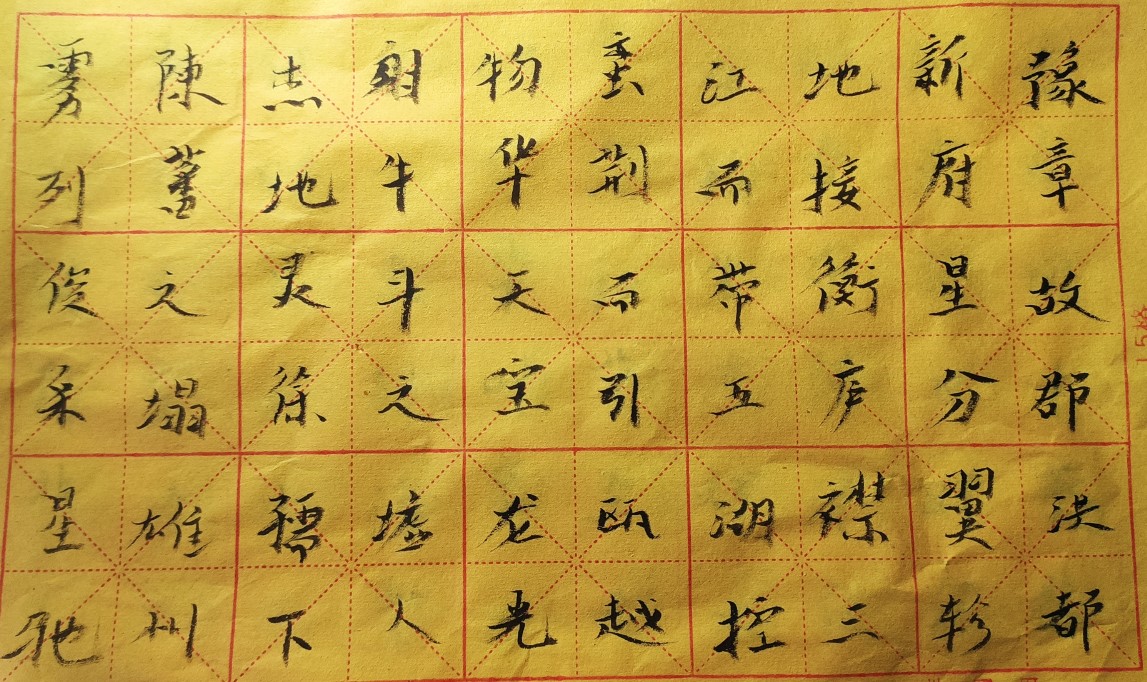 豫章故郡洪都
新府星分翼轸
地接衡庐襟三
江而带五湖控
蛮荆而引瓯越
物华天宝龙光
射牛斗之墟人
杰地灵徐孺下
陳蕃之塌雄州
雾列俊采星驰